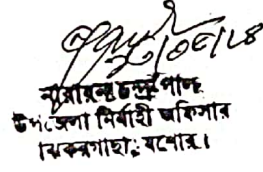 নারায়ন চন্দ্র পাল
উপজেলা নির্বাহী অফিসার
ঝিকরগাছা, যশোর।